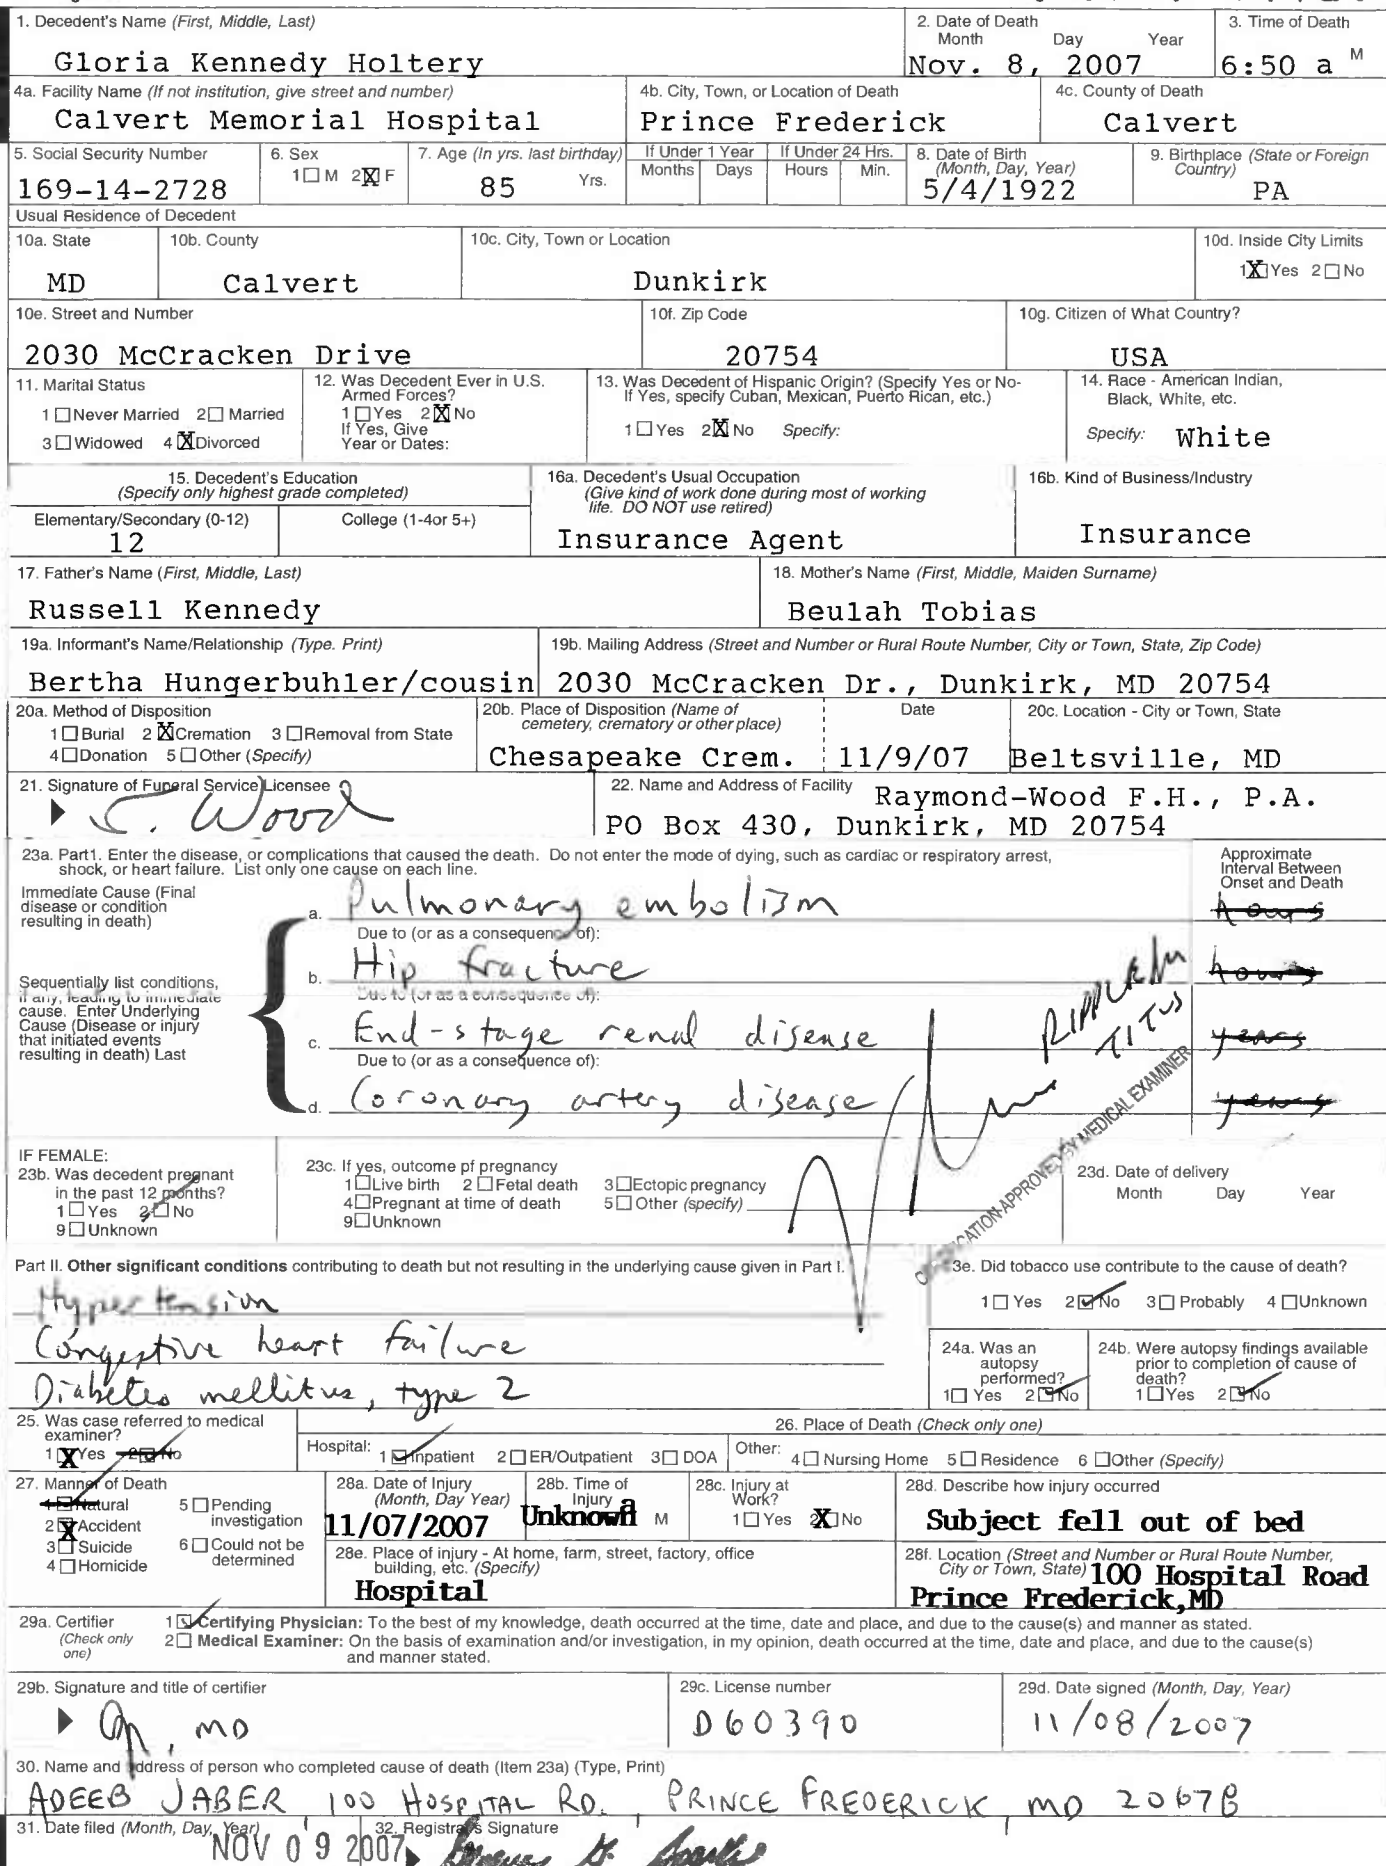 1. Decedent's Name (First, Middle, Last)
Gloria Kennedy Holtery
2. Date of Death
Month Day Year
Nov. 8, 2007
3. Time of Death
6:50 a M
4a. Facility Name (If not institution, give street and number)
Calvert Memorial Hospital
4b. City, Town, or Location of Death
Prince Frederick
4c. County of Death
Calvert
5. Social Security Number
169-14-2728
6. Sex
1☐ M 2☒ F
7. Age (In yrs. last birthday)
85 Yrs.
If Under 1 Year
Months Days
If Under 24 Hrs.
Hours Min.
8. Date of Birth
(Month, Day, Year)
5/4/1922
9. Birthplace (State or Foreign
Country)
PA
Usual Residence of Decedent
10a. State
MD
10b. County
Calvert
10c. City, Town or Location
Dunkirk
10d. Inside City Limits
1☒ Yes 2☐ No
10e. Street and Number
2030 McCracken Drive
10f. Zip Code
20754
10g. Citizen of What Country?
USA
11. Marital Status
1 ☐ Never Married 2☐ Married
3☐ Widowed 4☒ Divorced
12. Was Decedent Ever in U.S.
Armed Forces?
1☐ Yes 2☒ No
If Yes, Give
Year or Dates:
13. Was Decedent of Hispanic Origin? (Specify Yes or No-
If Yes, specify Cuban, Mexican, Puerto Rican, etc.)
1☐ Yes 2☒ No Specify:
14. Race - American Indian,
Black, White, etc.
Specify: White
15. Decedent's Education
(Specify only highest grade completed)
Elementary/Secondary (0-12)
12
College (1-4or 5+)
16a. Decedent's Usual Occupation
(Give kind of work done during most of working
life. DO NOT use retired)
Insurance Agent
16b. Kind of Business/Industry
Insurance
17. Father's Name (First, Middle, Last)
Russell Kennedy
18. Mother's Name (First, Middle, Maiden Surname)
Beulah Tobias
19a. Informant's Name/Relationship (Type. Print)
Bertha Hungerbuhler/cousin
19b. Mailing Address (Street and Number or Rural Route Number, City or Town, State, Zip Code)
2030 McCracken Dr., Dunkirk, MD 20754
20a. Method of Disposition
1☐ Burial 2☒ Cremation 3☐ Removal from State
4☐ Donation 5☐ Other (Specify)
20b. Place of Disposition (Name of
cemetery, crematory or other place)
Chesapeake Crem.
Date
11/9/07
20c. Location - City or Town, State
Beltsville, MD
21. Signature of Funeral Service Licensee
Wood
22. Name and Address of Facility Raymond-Wood F.H., P.A.
PO Box 430, Dunkirk, MD 20754
23a. Part1. Enter the disease, or complications that caused the death. Do not enter the mode of dying, such as cardiac or respiratory arrest,
shock, or heart failure. List only one cause on each line.
Approximate
Interval Between
Onset and Death
Immediate Cause (Final
disease or condition
resulting in death)
a. Pulmonary embolism
hours
Due to (or as a consequence of):
b. Hip fracture
hours
Sequentially list conditions,
if any, leading to immediate
cause. Enter Underlying
Cause (Disease or injury
that initiated events
resulting in death) Last
Due to (or as a consequence of):
c. End-stage renal disease
years
Due to (or as a consequence of):
d. Coronary artery disease
years
TITUS
APPROVED BY MEDICAL EXAMINER
IF FEMALE:
23b. Was decedent pregnant
in the past 12 months?
1☐ Yes 2☑ No
9☐ Unknown
23c. If yes, outcome pf pregnancy
1☐ Live birth 2☐ Fetal death 3☐ Ectopic pregnancy
4☐ Pregnant at time of death 5☐ Other (specify)
9☐ Unknown
23d. Date of delivery
Month Day Year
Part II. Other significant conditions contributing to death but not resulting in the underlying cause given in Part I.
Hypertension
Congestive heart failure
Diabetes mellitus, type 2
3e. Did tobacco use contribute to the cause of death?
1☐ Yes 2☑ No 3☐ Probably 4☐ Unknown
24a. Was an
autopsy
performed?
1☐ Yes 2☑ No
24b. Were autopsy findings available
prior to completion of cause of
death?
1☐ Yes 2☑ No
25. Was case referred to medical
examiner?
1☒ Yes 2☑ No
26. Place of Death (Check only one)
Hospital: 1☑ Inpatient 2☐ ER/Outpatient 3☐ DOA
Other: 4☐ Nursing Home 5☐ Residence 6☐ Other (Specify)
27. Manner of Death
1☑ Natural
2☒ Accident
3☐ Suicide
4☐ Homicide
5☐ Pending
investigation
6☐ Could not be
determined
28a. Date of Injury
(Month, Day Year)
11/07/2007
28b. Time of
Injury
Unknown M
28c. Injury at
Work?
1☐ Yes 2☒ No
28d. Describe how injury occurred
Subject fell out of bed
28e. Place of injury - At home, farm, street, factory, office
building, etc. (Specify)
Hospital
28f. Location (Street and Number or Rural Route Number,
City or Town, State) 100 Hospital Road
Prince Frederick,MD
29a. Certifier
(Check only
one)
1☑ Certifying Physician: To the best of my knowledge, death occurred at the time, date and place, and due to the cause(s) and manner as stated.
2☐ Medical Examiner: On the basis of examination and/or investigation, in my opinion, death occurred at the time, date and place, and due to the cause(s)
and manner stated.
29b. Signature and title of certifier
, MD
29c. License number
D60390
29d. Date signed (Month, Day, Year)
11/08/2007
30. Name and address of person who completed cause of death (Item 23a) (Type, Print)
ADEEB JABER 100 HOSPITAL RD., PRINCE FREDERICK, MD 20678
31. Date filed (Month, Day, Year)
NOV 09 2007
32. Registrar's Signature